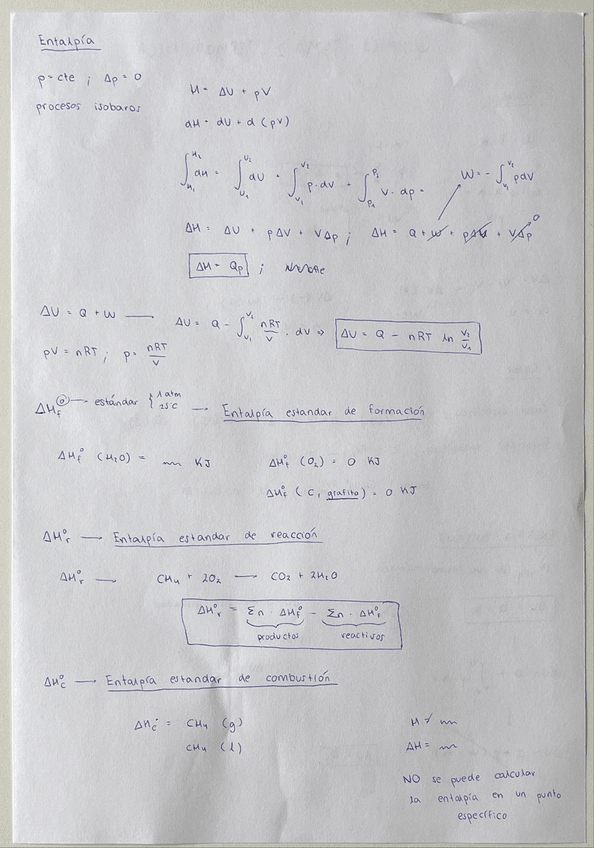 Entalpía
p = cte ; Δp = 0
procesos isobaros
H = ΔU + pV
dH = dU + d (pV)
∫_{H₁}^{H₂} dH = ∫_{U₁}^{U₂} dU + ∫_{V₁}^{V₂} p·dV + ∫_{P₁}^{P₂} V·dp =
W = - ∫_{V₁}^{V₂} pdV
ΔH = ΔU + pΔV + VΔp ; ΔH = Q + W + pΔV + VΔp 0
ΔH = Qp ;
ΔU = Q + W —— ΔU = Q - ∫_{V₁}^{V₂} nRT/V · dV ⇒ ΔU = Q - nRT ln V₂/V₁
pV = nRT ; p = nRT/V
ΔH_f^0 —— estándar { 1 atm 25°C —— Entalpía estandar de formación
ΔH_f° (H₂O) = KJ
ΔH_f° (O₂) = 0 KJ
ΔH_f° (C, grafito) = 0 KJ
ΔH_r° —— Entalpía estandar de reacción
ΔH_r° —— CH₄ + 2O₂ —— CO₂ + 2H₂O
ΔH_r° = Σn · ΔH_f° - Σn · ΔH_f°
productos reactivos
ΔH_c° —— Entalpía estandar de combustión
ΔH_c° = CH₄ (g)
CH₄ (l)
H ≠
ΔH =
NO se puede calcular
la entalpía en un punto
específico